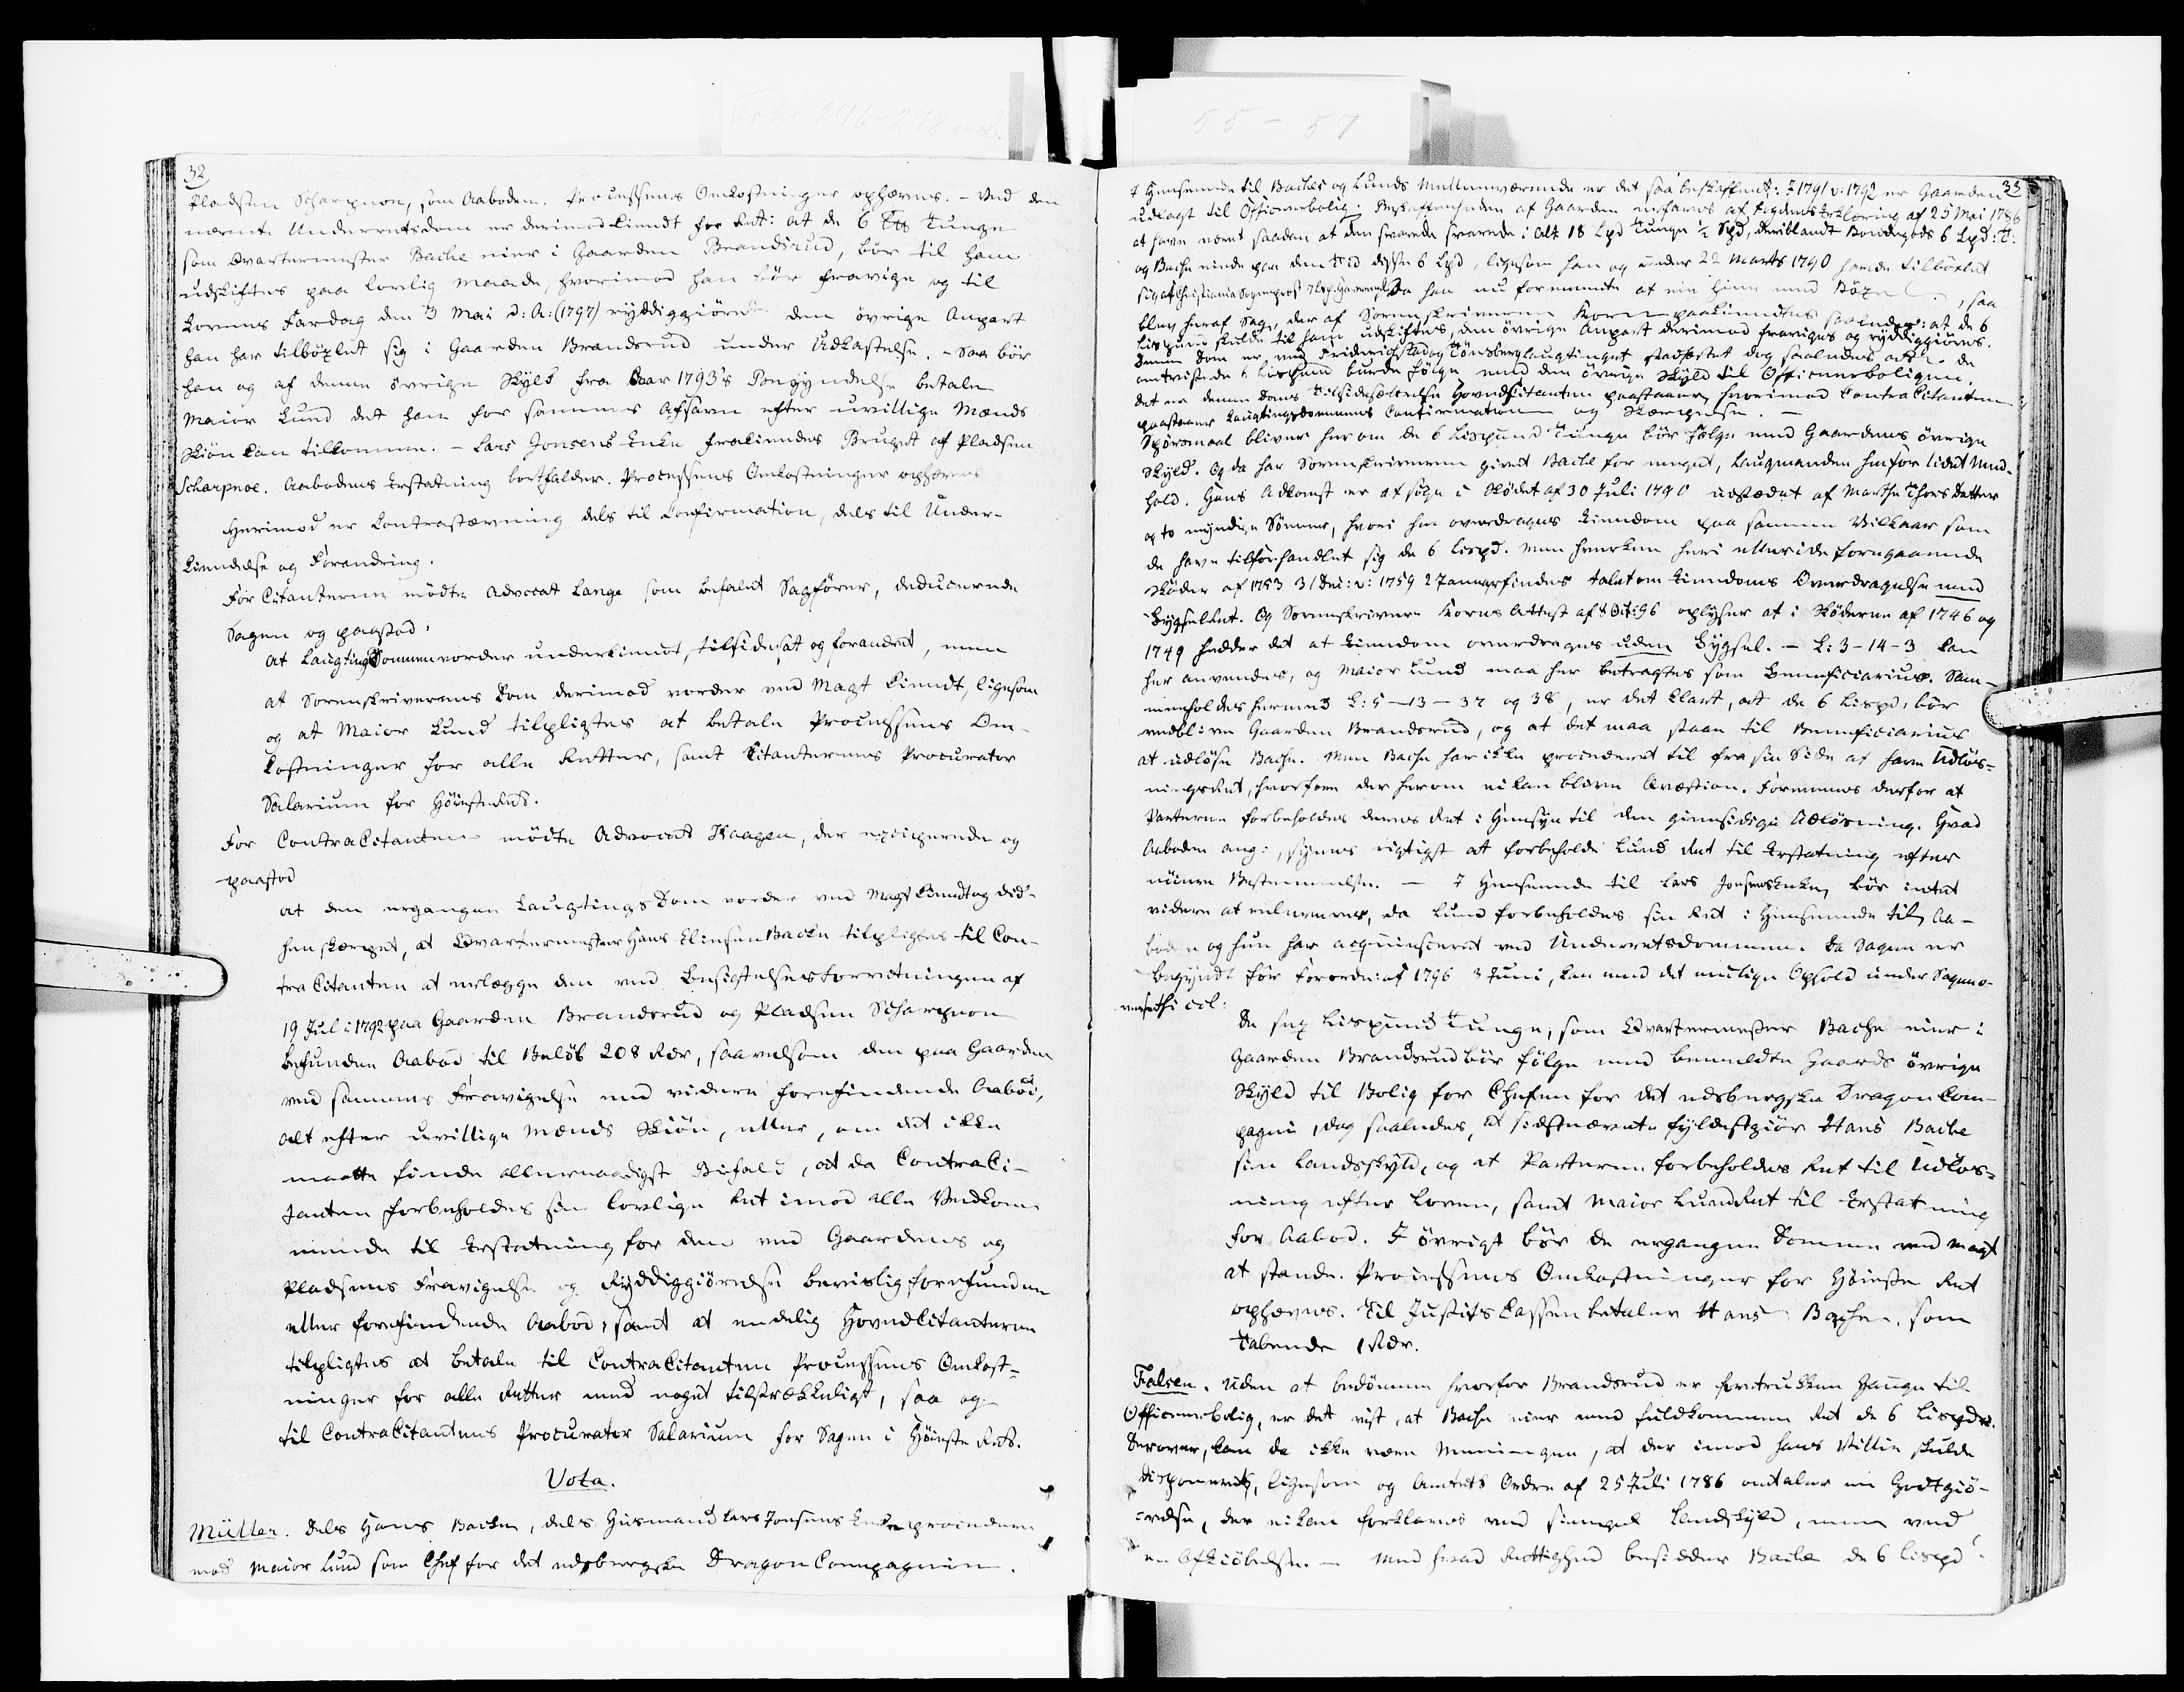 32
Pladsen Scharpnoe, som Aaboden. Processens Omkostninger ophæves. – Ved den
nævnte Underretsdom er derimod kiendt for Ret: at de 6 Lpd Tunge
som Qvartermester Bache eier i Gaarden Brandsrud, bør til ham
udskiftes paa lovlig Maade, hvorimod han bør fravige og til
Lovens Fardag den 3 Mai d: A: (1797) ryddiggiøre den øvrige Anpart
han har tilbøxlet sig i Gaarden Brandsrud under Udkastelse. – Saa bør
han og af denne øvrige Skyld fra Aar 1793's Begyndelse betale
Maior Lund det ham for sammes Afsavn efter uvillige Mænds
Skiøn kan tilkomme. – Lars Jonsens Enke frakiendes Bruget af Pladsen
Scharpnoe. Aabodens Erstatning bortfalder. Processens Omkostninger ophæves
Herimod er Contrastævning dels til Confirmation, dels til Under-
kiendelse og Forandring.
For Citanterne mødte Advocat Lange som befalet Sagfører, deducerende
Sagen og paastod:
at Laugtings Dommen vorder underkiendt, tilsidesat og forandret, men
at Sorenskriverens Dom derimod vorder ved Magt kiendt, ligesom
og at Maior Lund tilpligtes at betale Processens Om-
kostninger for alle Retter, samt Citanternes Procurator
Salarium for Høiesteret.
For ContraCitanten mødte Advocat Haagen, der exciperende og
paastod
at den ergangne Laugtings Dom vorder ved Magt kiendt og did-
hen skærpet, at Qvartermester Hans Eliesen Bache tilpligtes til Con-
traCitanten at erlægge den ved Besigtelsesforretningen af
19 Juli 1792 paa Gaarden Brandsrud og Pladsen Scharpnoe
befundne Aabod til Beløb 208 Rdr, saavelsom den paa Gaarden
ved sammes Fravigelse end videre forefindende Aabod,
alt efter uvillige Mænds Skiøn, eller, om det ikke
maatte finde allernaadigst Bifald, at da ContraCi-
tanten forbeholdes sin lovlige Ret imod alle Vedkom-
mende til Erstatning for den ved Gaardens og
Pladsens Fravigelse og Ryddiggiørelse bevislig forefundne
eller forefindende Aabod, samt at endelig HovedCitanterne
tilpligtes at betale til ContraCitanten Processens Omkost-
ninger for alle Retter med noget tilstrækkeligt, saa og
til ContraCitantens Procurator Salarium for Sagen i Høieste Ret.
Vota.
Müller. Dels Hans Bache, dels Huusmand Lars Jonsens Enke procederer
mod Maior Lund som Chef for det edsbergske Dragon Compagnie.
33
I Henseende til Baches og Lunds Mellemværende er det saa beskaffent: I 1791 o: 1792 er Gaarden
udlagt til Officeerbolig. Beskaffenheden af Gaarden erfares af Fogdens Erklæring af 25 Mai 1786
at have været saadan at den svarede i Alt 18 Lpd Tunge ½ Skpd, deriblandt Bondegods 6 Lpd: T:
og Bache eiede paa den Tid disse 6 Lpd, ligesom han og under 22 Marts 1790 havde tilbøxlet
sig af Christiania Sogneprest Da han nu formeente at eie hine med Bøxel , saa
blev heraf Sag, der af Sorenskriveren Korn paakiendtes saaledes: at de 6
Lispund skulde til ham udskiftes, den øvrige Anpart derimod fraviges og ryddiggiøres.
Denne Dom er ved Friderichstad og Tønsberg Laugtinget stadfæstet dog saaledes at de
omtvistede 6 Lispund burde følge med den øvrige Skyld til Officeerboligen.
Det er denne Doms Tilsidesættelse HovedCitanten paastaaer, hvorimod ContraCitanten
paastaaer Laugtingsdommens Confirmation og Skærpelse. –
Spørsmaal bliver her om de 6 Lispund Tunge bør følge med Gaardens øvrige
Skyld. Og da har Sorenskriveren givet Bache for meget, Laugmanden hesfør lidet Med-
hold. Hans Adkomst er at søge i Skødet af 30 Juli 1790 udstædet af Marthe Thors Datter
og to myndige Sønner, hvori hun overdrages Eiendom paa samme Vilkaar som
de have tilforhandlet sig de 6 Lispd. Men hverken heri eller i de foregaaende
Skøder af 1753 31 Dec: o: 1759 2 Januar findes talet om Eiendoms Overdragelse med
Bygselret. Og Sorenskriver Korns Attest af 8 Oct: 96 oplyser at i Skøderne af 1746 og
1749 hedder det at Eiendom overdrages uden Bygsel. – L: 3-14-3 kan
her anvendes, og Maior Lund maa her betragtes som Beneficiarius. Sam-
menholdes hermed L: 5-13-37 og 38, er det klart, at de 6 Lispd: bør
vedblive Gaarden Brandsrud, og at det maa staae til Beneficiarius
at udløse Bache. Men Bache har ikke procederet til fra sin Side at have Udløs-
ningsRet, hvorfore der herom ei kan blive Qvæstion. Formenes derfor at
Parterne forbeholdes deres Ret i Hensyn til den giensidige Udløsning. Hvad
Aaboden ang:, synes rigtigst at forbeholde Lund Ret til Erstatning efter
nüiere Bestemmelse. – I Henseende til Lars Jonsens Enke, bør intet
videre at releveres, da Lund forbeholdes sin Ret i Henseende til Aa-
boden og hun har acquiesceret ved Underretsdommen. Da Sagen er
begyndt før Forordn: af 1796 3 Juni, kan med det mulige Ophold under Sagen o-
verseethi ccl:
De sex Lispund Tunge, som Qvartermester Bache eier i
Gaarden Brandsrud bør følge med bemeldte Gaards øvrige
Skyld til Bolig for Chefen for det edsbergske Dragon Com-
pagnie, dog saaledes, at sidstnævnte fyldestgiør Hans Bache
sin Landsskyld, og at Parterne forbeholdes Ret til Udløs-
ning efter Loven, samt Maior Lund Ret til Erstatning
for Aabod. I øvrigt bør de ergangne Domme ved Magt
at stande. Processens Omkostninger for Høieste Ret
ophæves. Til JustitsCassen betaler Hans Bache, som
tabende 1 Rdr.
Falsen. Uden at bedømme hvorfor Brandsrud er foretrukken Hauge til
Officeerbolig, er det vist, at Bache eier med fuldkommen Ret de 6 Lispdr.
Derover, kan da ikke være Meeningen, at der imod hans Villie skulde
disponeres, ligesom og Amtets Ordre af 25 Juli 1786 omtaler en Godtgiø-
relse, der ei kan forklares ved simpel Landskyld, men ved
en Afkiøbelse. – Med hvad Rettighed besidder Bache de 6 Lispd